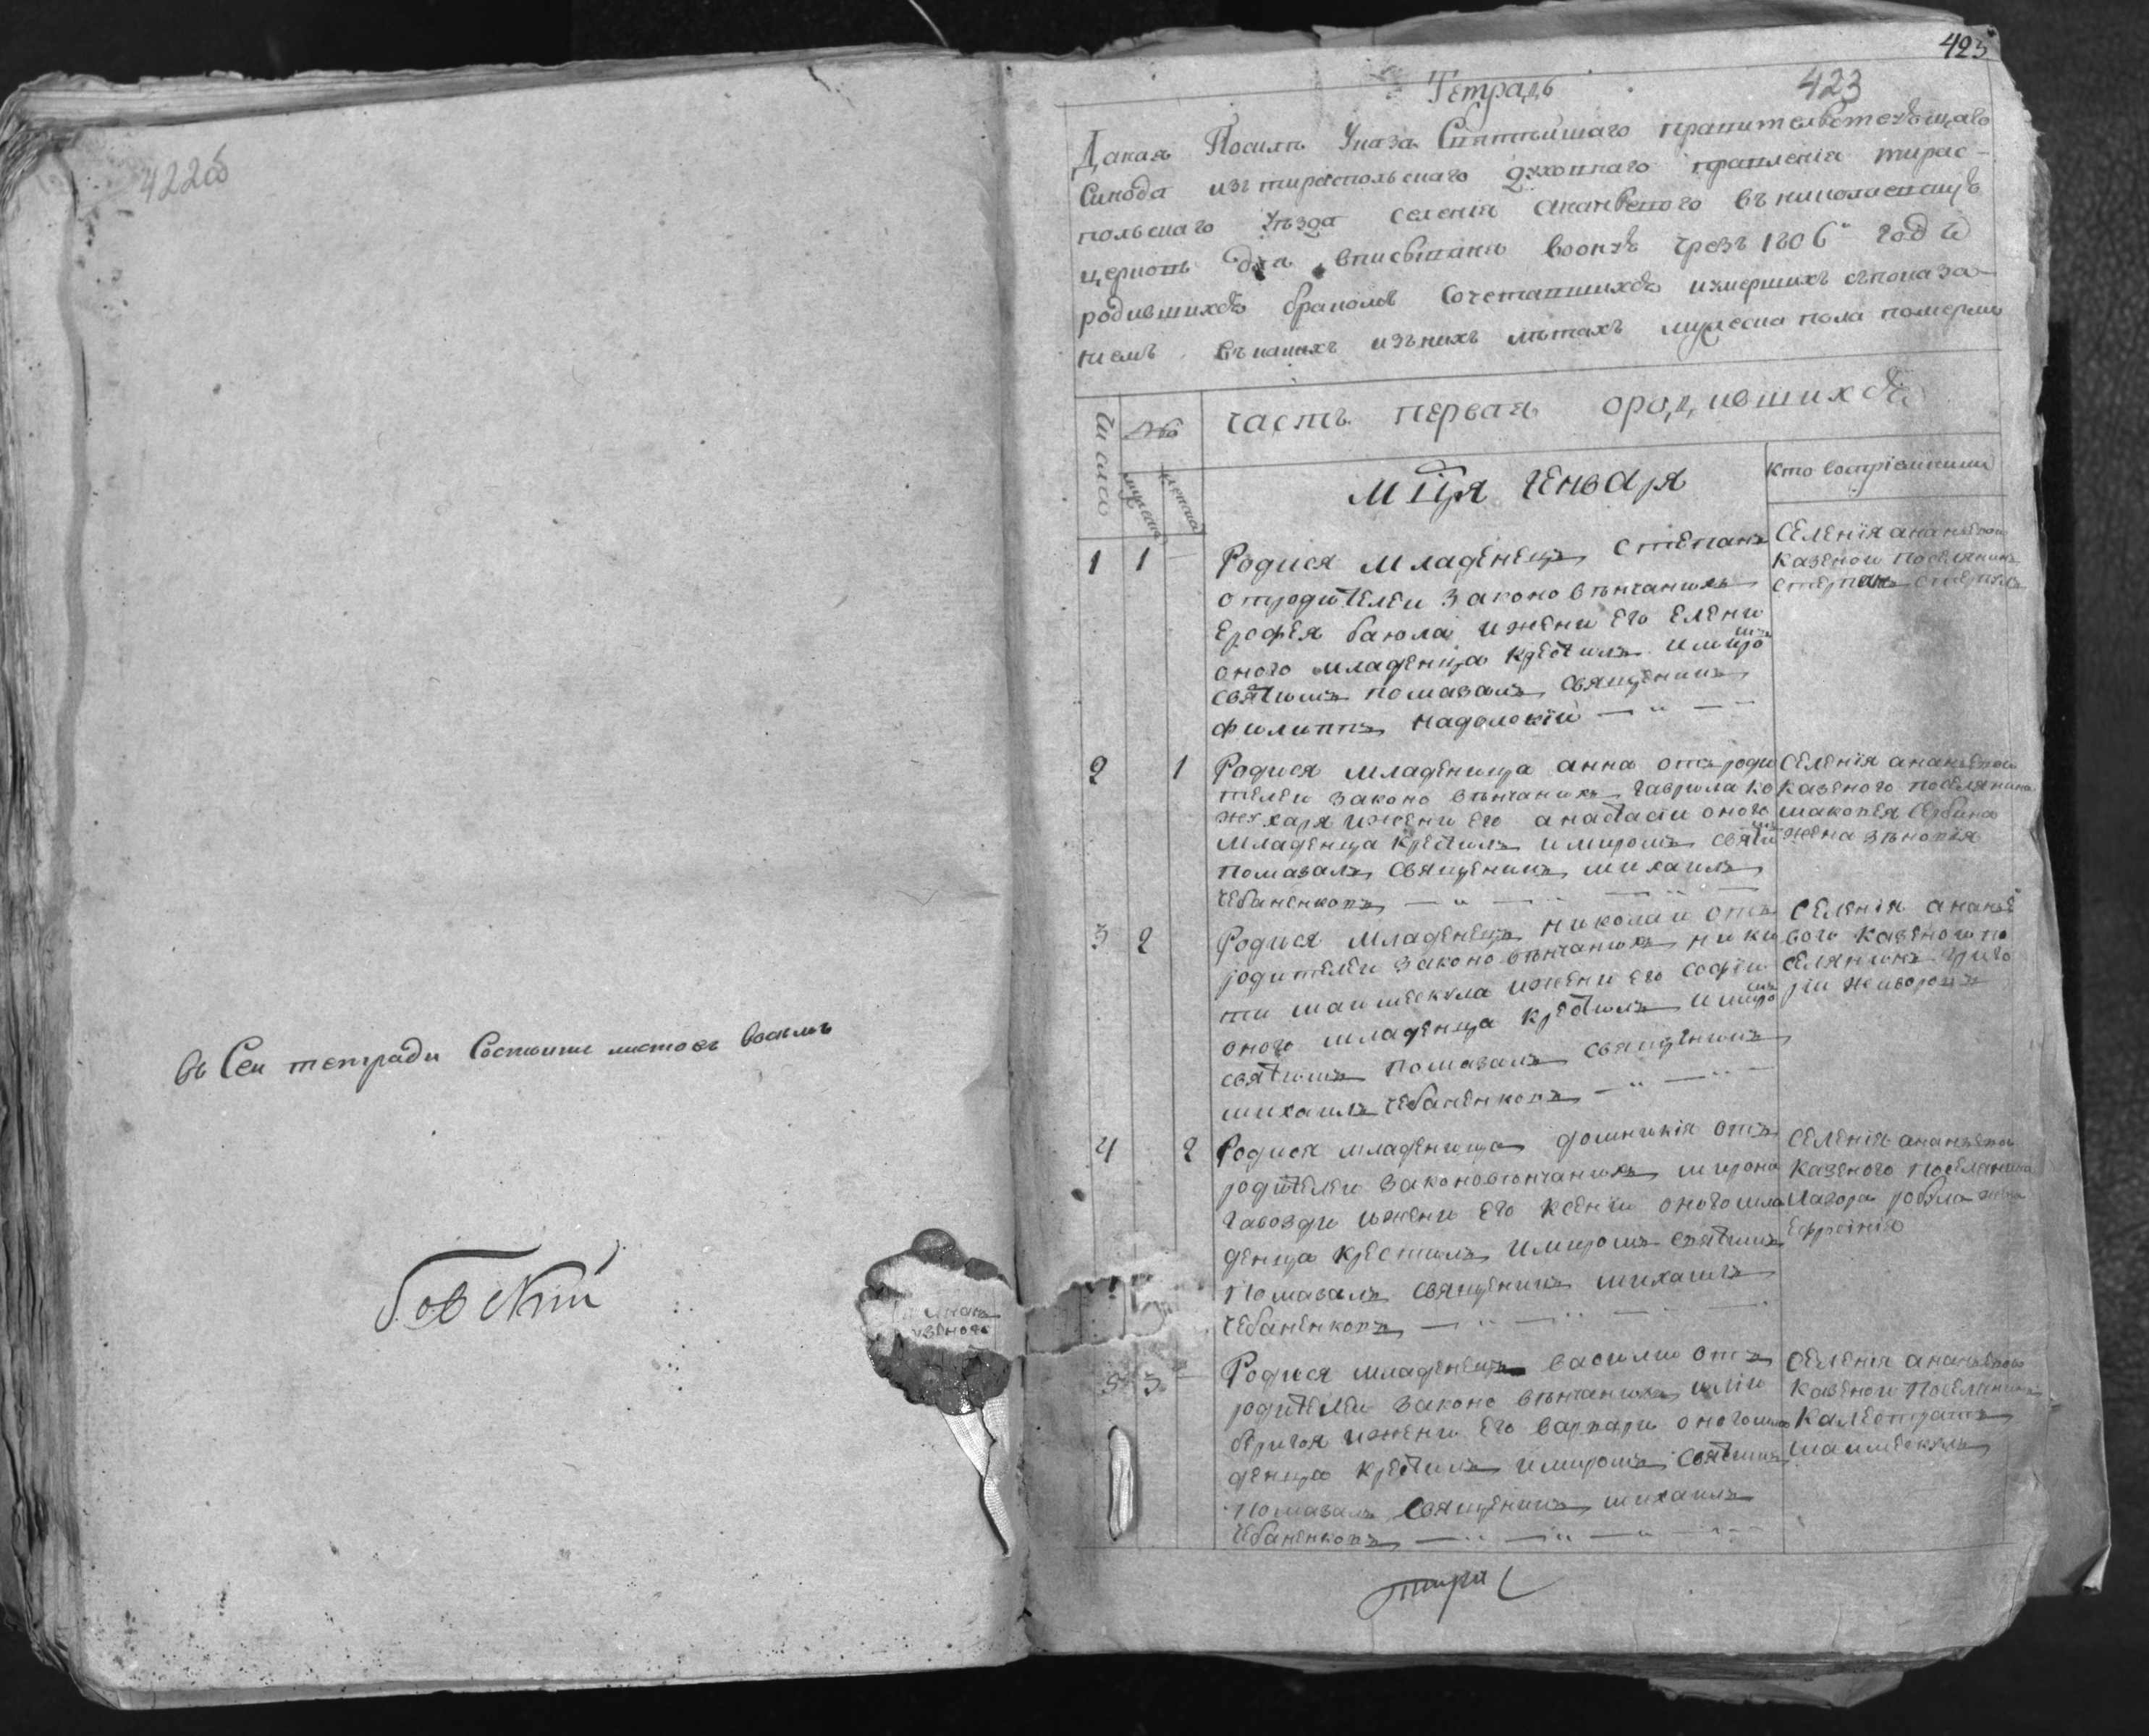 422об
въ Сей тетради Состоитъ листовъ восемъ
423
423
Тетрадь
Даная Посилѣ Указа Святѣйшаго правительствующаго
Синода изъ тираспольскаго Духовнаго правленія тирас-
польскаго уѣзда селенія Ананьевого въ николаевскую
церковь для вписыванія воону чрезъ 1806й годъ о
родившихся бракомъ Сочетавшихся иумершихъ съпоказа-
ніемъ въкакихъ изънихъ лѣтахъ мужеска пола померли
Число
№
мужеска
женска
часть первая ородившихся
Мцая Генваря
кто восприемники
1 1 Родися младенецъ Степанъ
отродителеи законо вѣнчанихъ
Ерофея баюла ижени его Елени
оного младенца крестилъ имиромъ
святимъ помазалъ священикъ
филиппъ надолскій
Селенія ананьевого
казеной поселянинъ
Степанъ
2 1 Родися младеница анна отъ роди
телеи законо вѣнчанихъ гаврила ко
жухаря ижени его анастасіи оного
младенца крестилъ имиромъ святимъ
помазалъ священикъ михаилъ
Чебаненковъ
Селенія ананьевого
казеного поселянина
маковея Сербина
жена зѣновія
3 2 Родися младенецъ николай отъ
родителеи законо вѣнчанихъ ники
ти маимескула ижени его софіи
оного младенца крестилъ имиромъ
святимъ помазалъ священикъ
михаилъ Чебаненковъ
Селенія ананье
вого казеного по
селянинъ григо
рій
4 2 Родися младеница домникія отъ
родителеи законовѣнчанихъ мирона
гавозди ижени его ксеніи оного мла
денца крестилъ имиромъ святимъ
помазалъ священикъ михаилъ
Чебаненковъ
Селенія ананьевого
казеного поселянина
жена
5 3 Родися младенецъ василий отъ
родителеи законо вѣнчанихъ иліи
ижени его варвари оного мла
денца крестилъ имиромъ святимъ
помазалъ священикъ михаилъ
Чебаненковъ
Селенія ананьевого
казеной поселянинъ
Калистратъ
маимескулъ